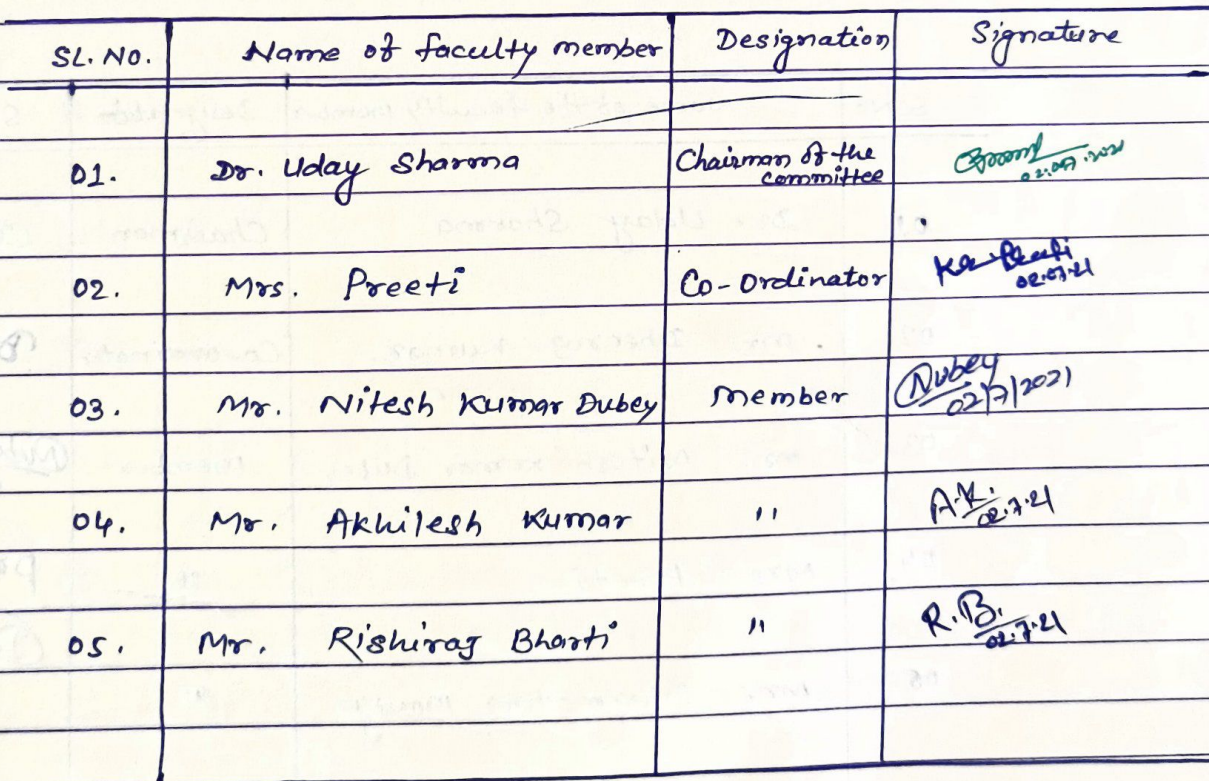 SL. NO. Name of faculty member Designation Signature
01. Dr. Uday Sharma Chairman of the
committee
02.07.2021
02. Mrs. Preeti Co-Ordinator
02.07.21
03. Mr. Nitesh Kumar Dubey Member Dubey
02/7/2021
04. Mr. Akhilesh Kumar " A.K.
02.7.21
05. Mr. Rishiraj Bharti " R.B.
02.7.21